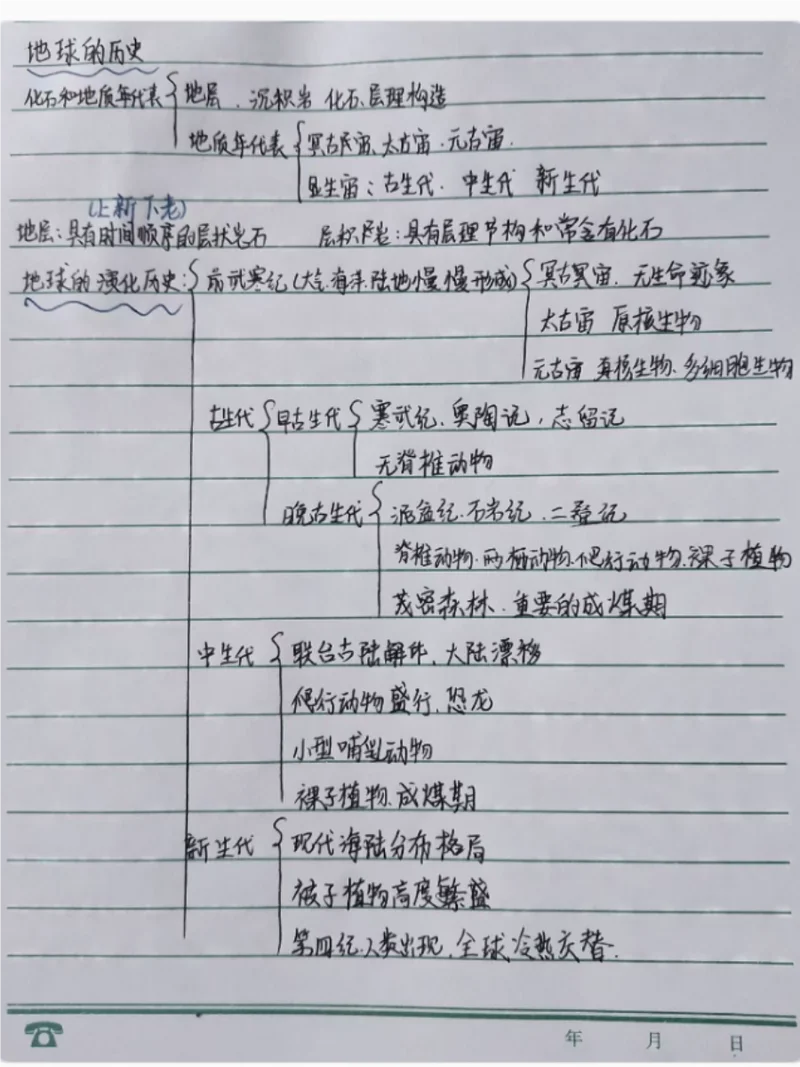 地球的历史
化石和地质年代表 地层、沉积岩 化石、层理构造
地质年代表 冥古宙、太古宙、元古宙.
显生宙：古生代、中生代 新生代
(上新下老)
地层：具有时间顺序的层状岩石 层积岩：具有层理节构和常含有化石
地球的演化历史： 前武寒纪(大气、海洋、陆地慢慢形成) 冥古宙、无生命迹象
太古宙 原核生物
元古宙 真核生物、多细胞生物
古生代 早古生代 寒武纪、奥陶记，志留记
无脊椎动物
晚古生代 泥盆纪、石岩纪、二叠记
脊椎动物、两栖动物、爬行动物、裸子植物
茂密森林、重要的成煤期
中生代 联合古陆解体、大陆漂移
爬行动物盛行、恐龙
小型哺乳动物
裸子植物、成煤期
新生代 现代海陆分布格局
被子植物高度繁盛
第四纪、人类出现、全球冷热交替.
年 月 日